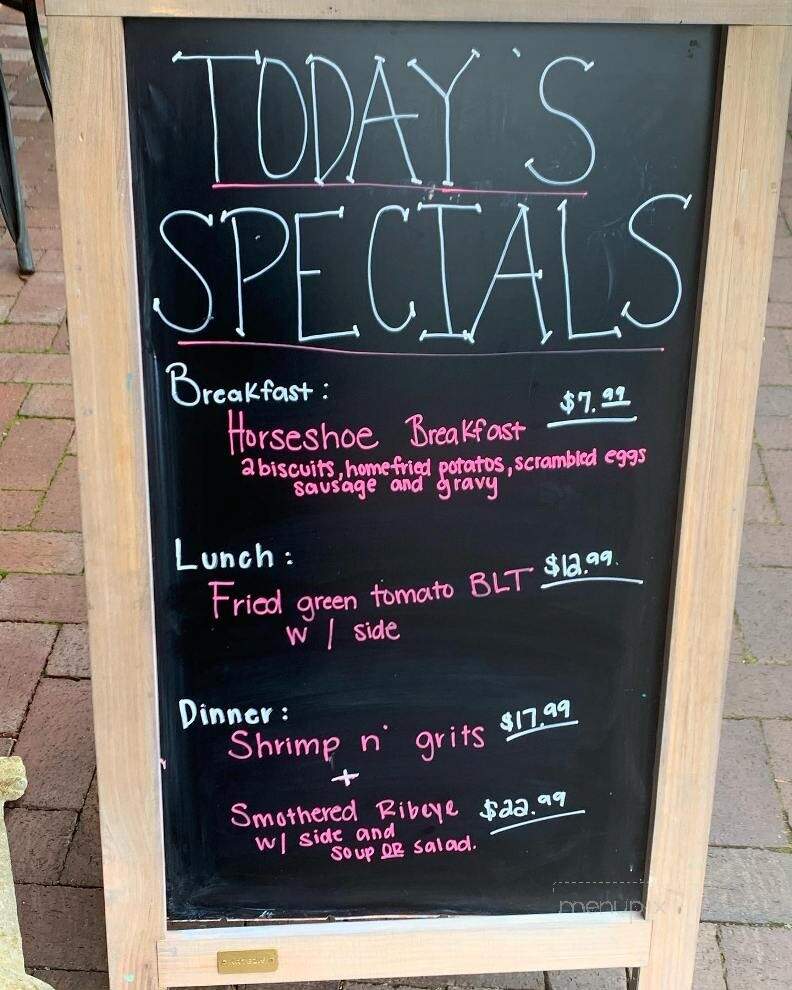 TODAY'S
SPECIALS
Breakfast: $7.99
Horseshoe Breakfast
2 biscuits, homefried potatos, scrambled eggs
sausage and gravy
Lunch: $12.99
Fried green tomato BLT
w / side
Dinner: $17.99
Shrimp n' grits
+
Smothered Ribeye $22.99
w/ side and
soup OR salad.